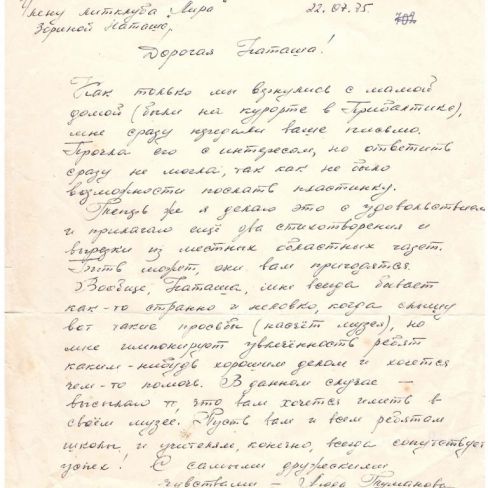 Члену литклуба "Лира" 22.07.75 702
Зориной Наташе.
Дорогая Наташа!
Как только мы вернулись с мамой
домой (были на курорте в Прибалтике),
мне сразу передали ваше письмо.
Прочла его с интересом, но ответить
сразу не могла, так как не было
возможности послать пластинку.
Теперь же я делаю это с удовольствием
и прилагаю ещё два стихотворения и
вырезки из местных областных газет.
Быть может, они вам пригодятся.
Вообще, Наташа, мне всегда бывает
как-то странно и неловко, когда слышу
вот такие просьбы (насчёт музея), но
мне импонирует увлечённость ребят
каким-нибудь хорошим делом и хочется
чем-то помочь. В данном случае –
высылаю то, что вам хочется иметь в
своём музее. Пусть вам и всем ребятам
школы, и учителям, конечно, всегда сопутствует
успех! С самыми дружескими
чувствами – Люда Туманова